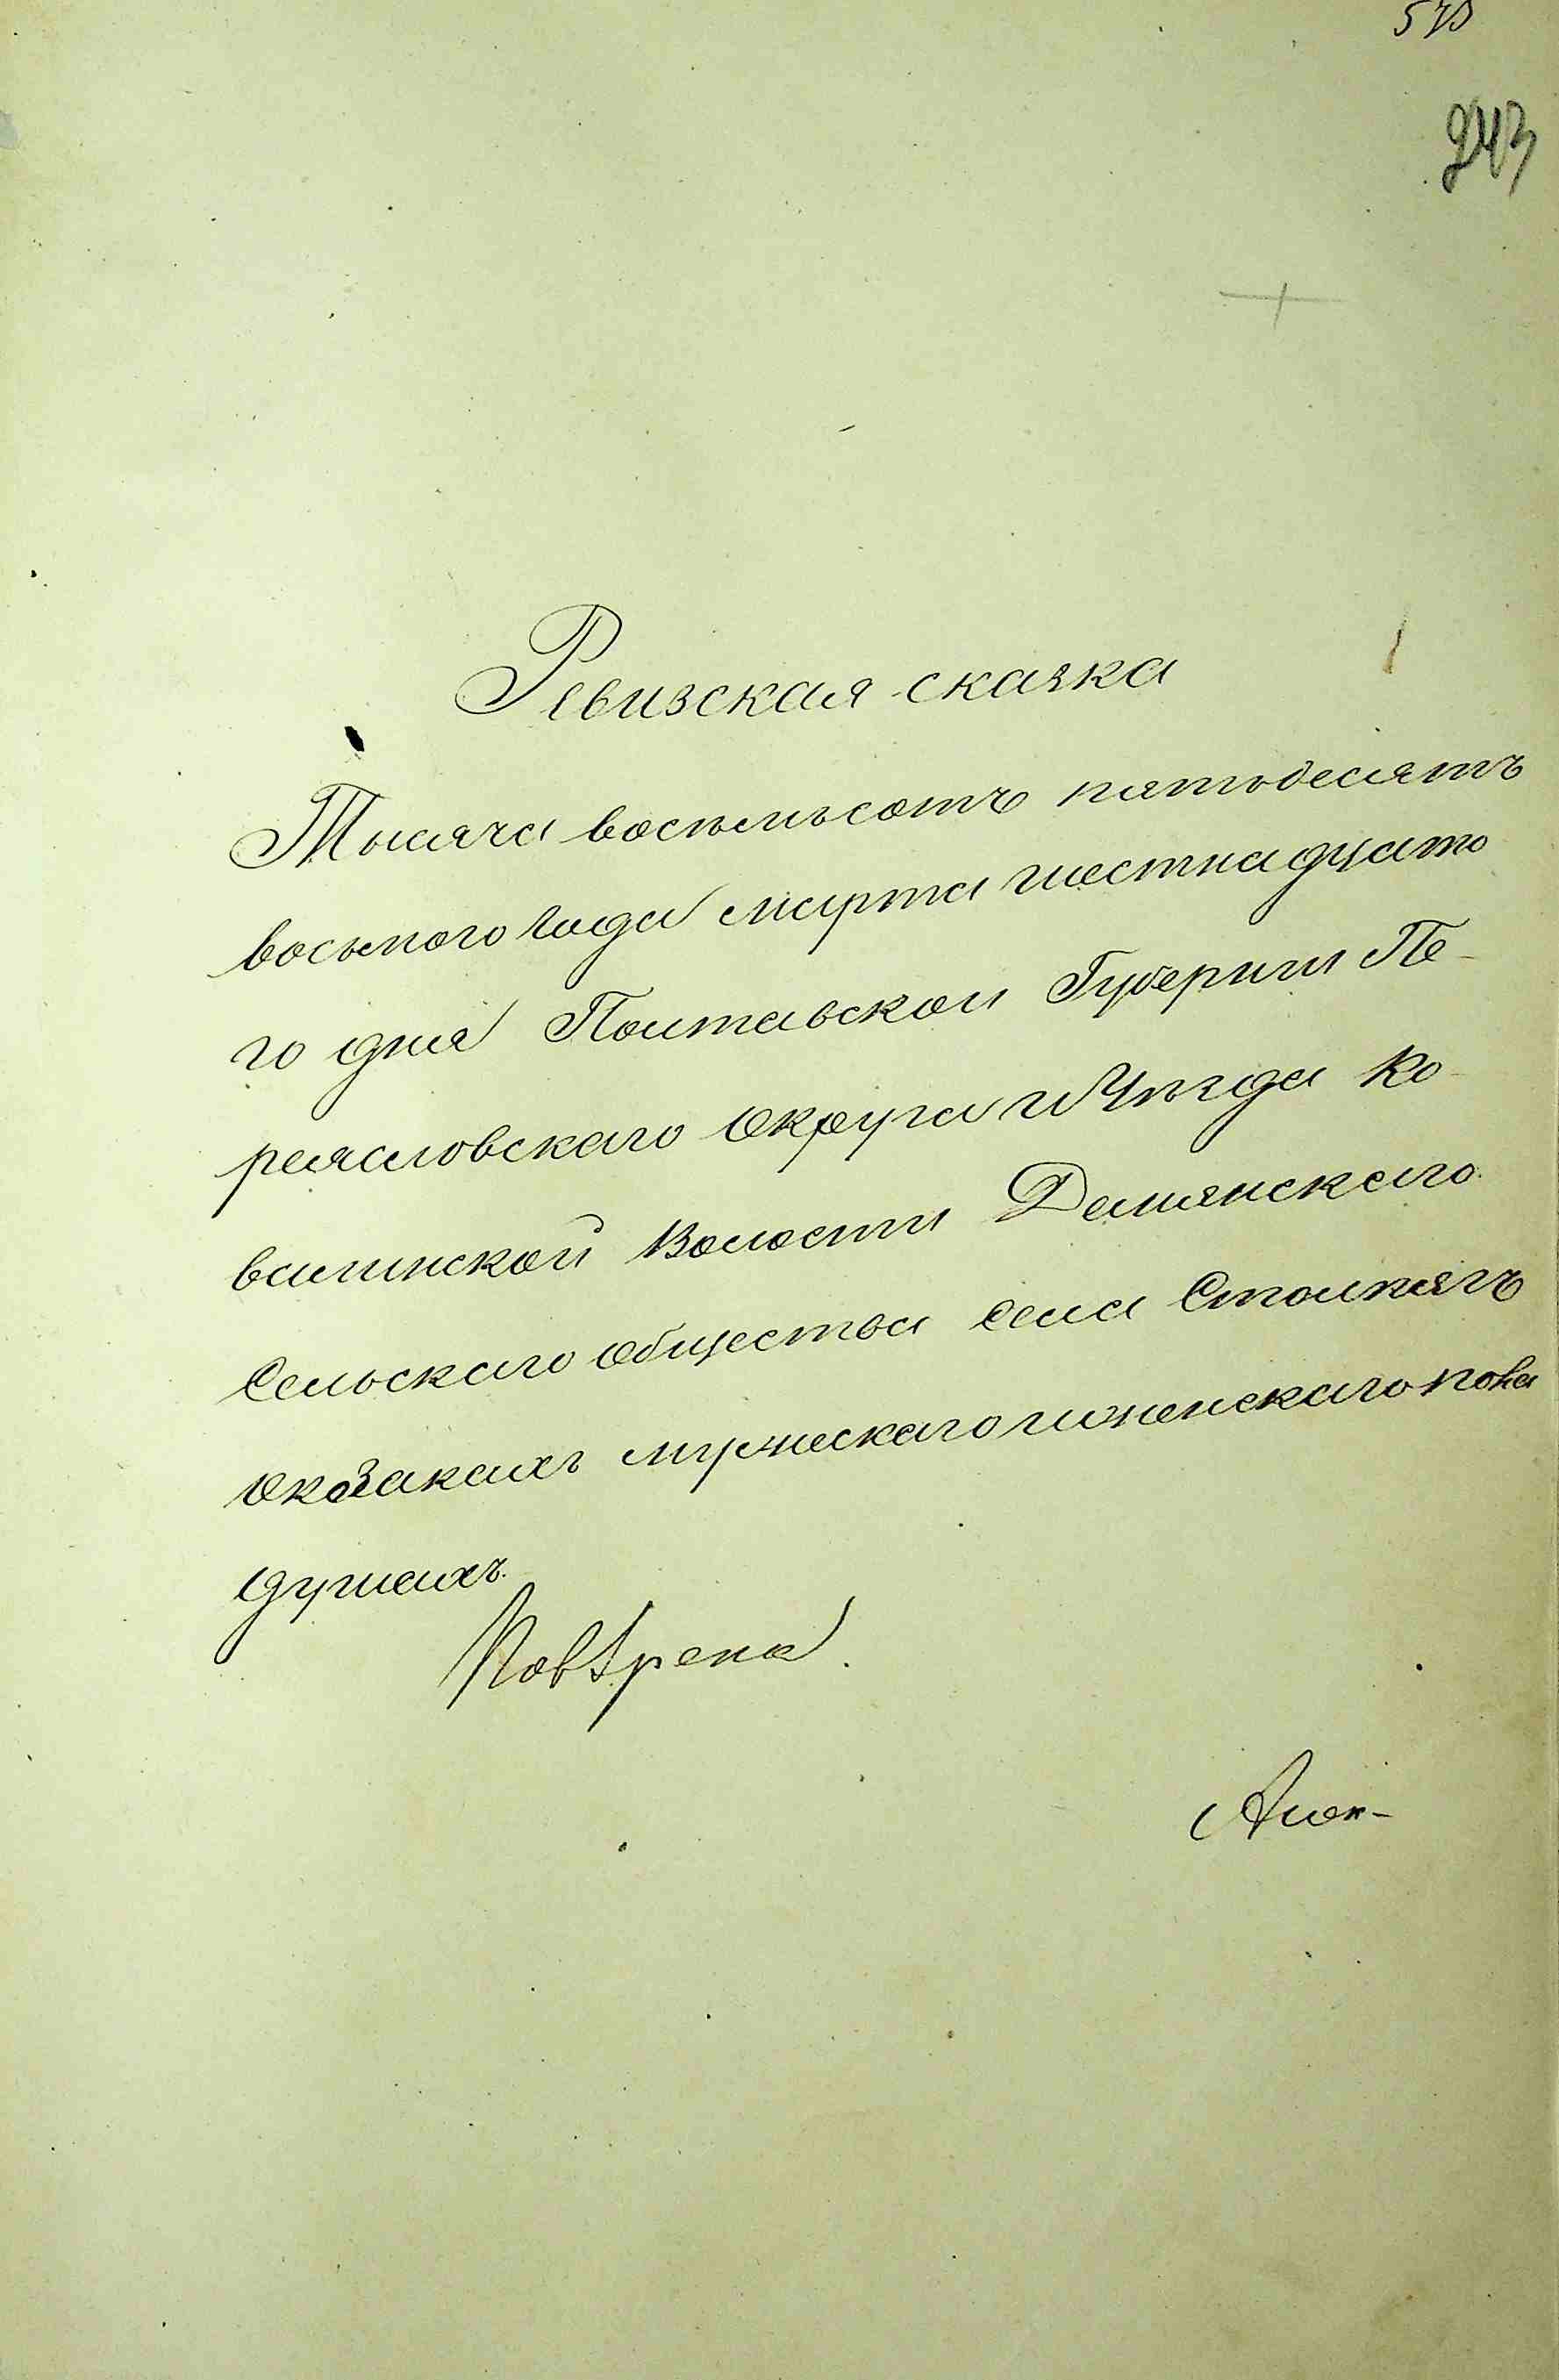 243
Ревизская сказка
Тысяча восемьсотъ пятьдесятъ
восьмого года марта шестнадцато
го дня Полтавской Губернии Пе-
реясловскаго округа и Уѣзда Ко-
валинской Волости Демянскаго
Сельскаго общества села Столпягъ
о козакахъ мужескаго и женскаго пола
душахъ.
Повѣрена.